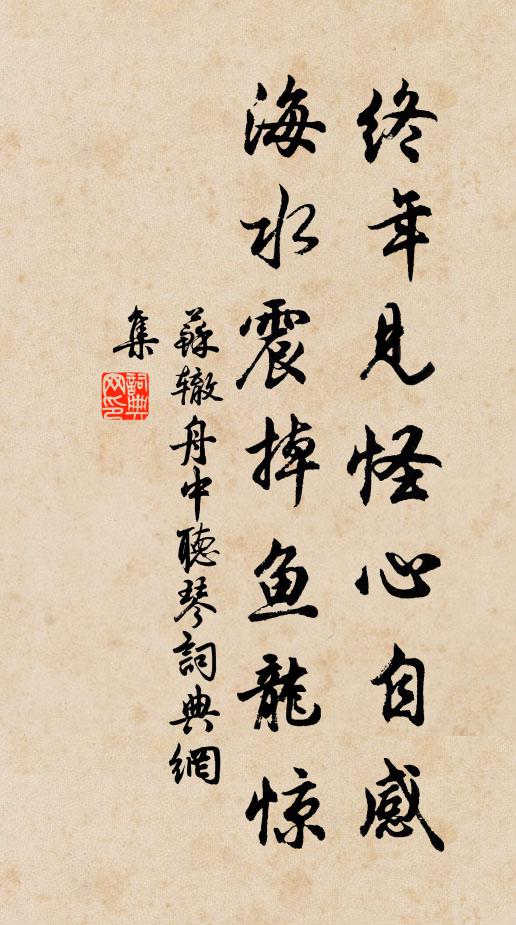 终年见怪心自感
海水震掉鱼龍惊
蘇辙舟中聽琴詞典網
集
詞典
网印